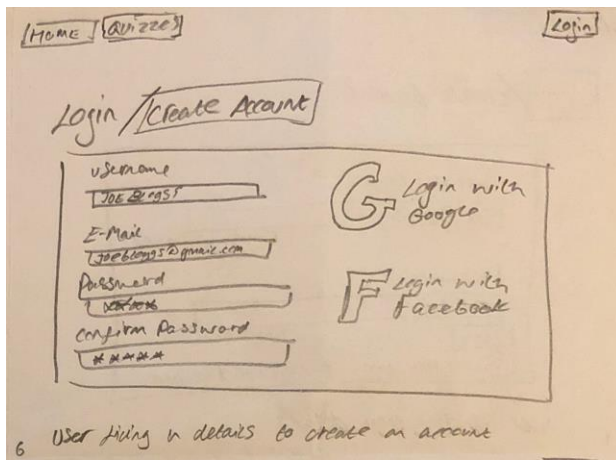 Home Quizzes Login
Login / Create Account
Username
JOE Bloggs
E-Mail
joebloggs@gmail.com
Password
****
Confirm Password
*****
G Login with
Google
F Login with
Facebook
6 User in details to create an account